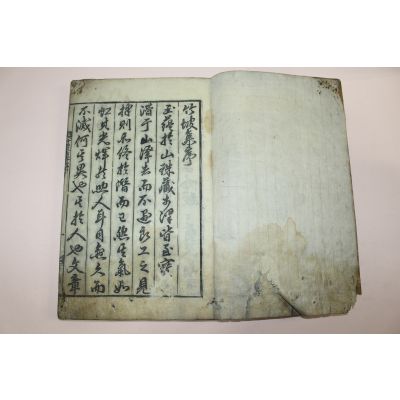 竹坡集序
玉蘊於山珠藏於澤皆至寶
潛于山澤者而不遇良工之見
採則不終於潛而已然其氣如
虹其光輝於照人耳目愈久而
不滅何其異也其於人也文章